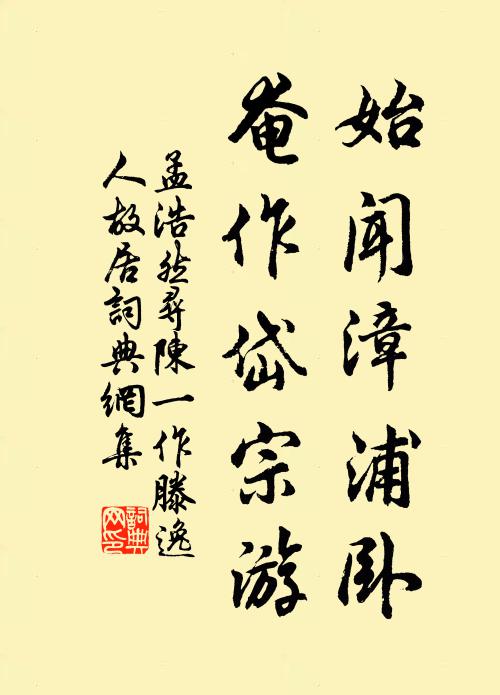 始闻漳浦卧
奄作岱宗游
孟浩然寻陳一作滕逸
人故居詞典網集
詞典网印